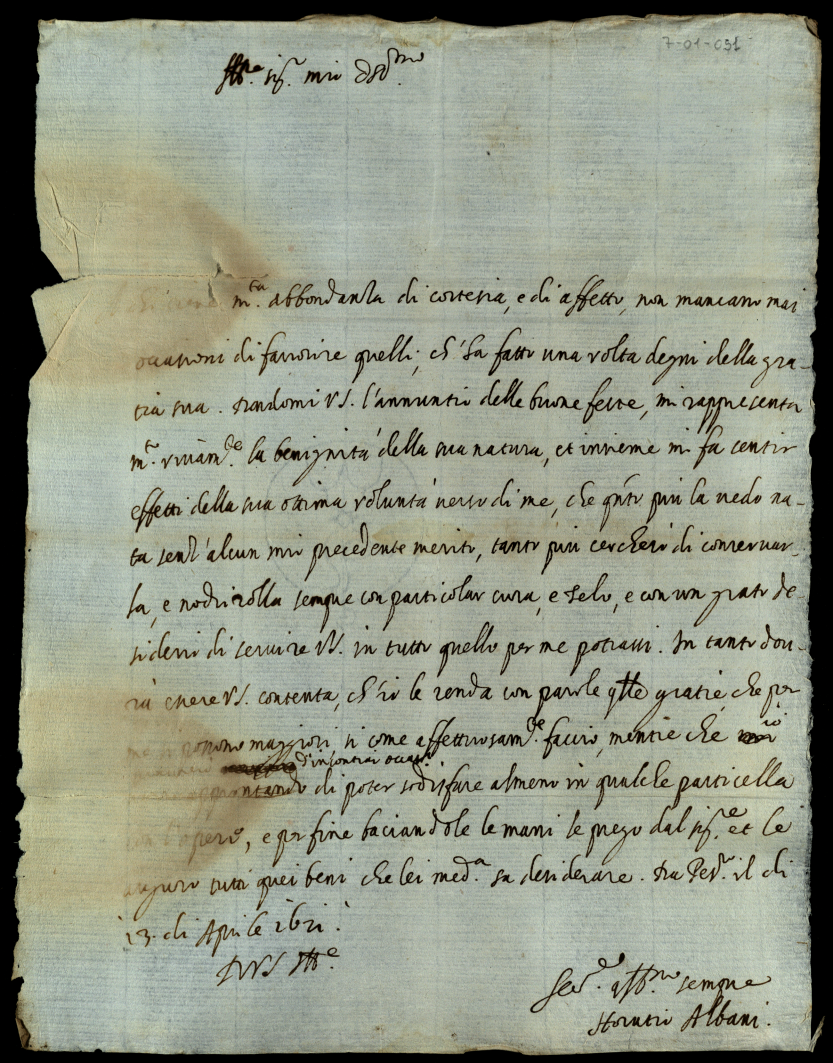 7-01-031
Ill.re sig.r mio oss.mo
m.ta abbondanza di cortesia, e di affetto, non mancano mai
occasioni di favorire quelli, ch'ha fatto una volta degni della gra-
tia sua. dandomi VS. l'annuntio delle buone feste, mi rappresenta
m.to vivam.te la benignità della sua natura, et insieme mi fa sentir
effetti della sua ottima voluntà verso di me, che q.nto più la vedo na-
ta senz'alcun mio precedente merito, tanto più cercherò di conservar-
la, e nodrirolla sempre con particolar cura, e zelo, e con un grato de-
siderio di servire VS. in tutto quello per me potrassi. In tanto dov-
rà essere VS. contenta, ch'io le renda con parole q.lle gratie, che per
me si possono maggiori, si come affettuosam.te faccio, mentre che io
d'incontrar occas.ni
di poter sodisfare almeno in qualche particella
con l'opere, e per fine baciandole le mani le prego dal sig.re et le
auguro tutti quei beni che lei med.a sa desiderare. Da Pes.o il di
13. di Aprile 1621.
D VS Ill.re
Ser.re aff.mo sempre
Horatio Albani.